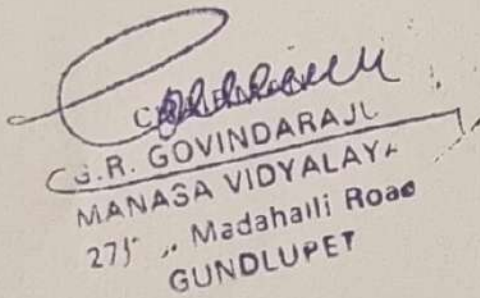 G.R. GOVINDARAJU
MANASA VIDYALAYA
275 ,, Madahalli Road
GUNDLUPET